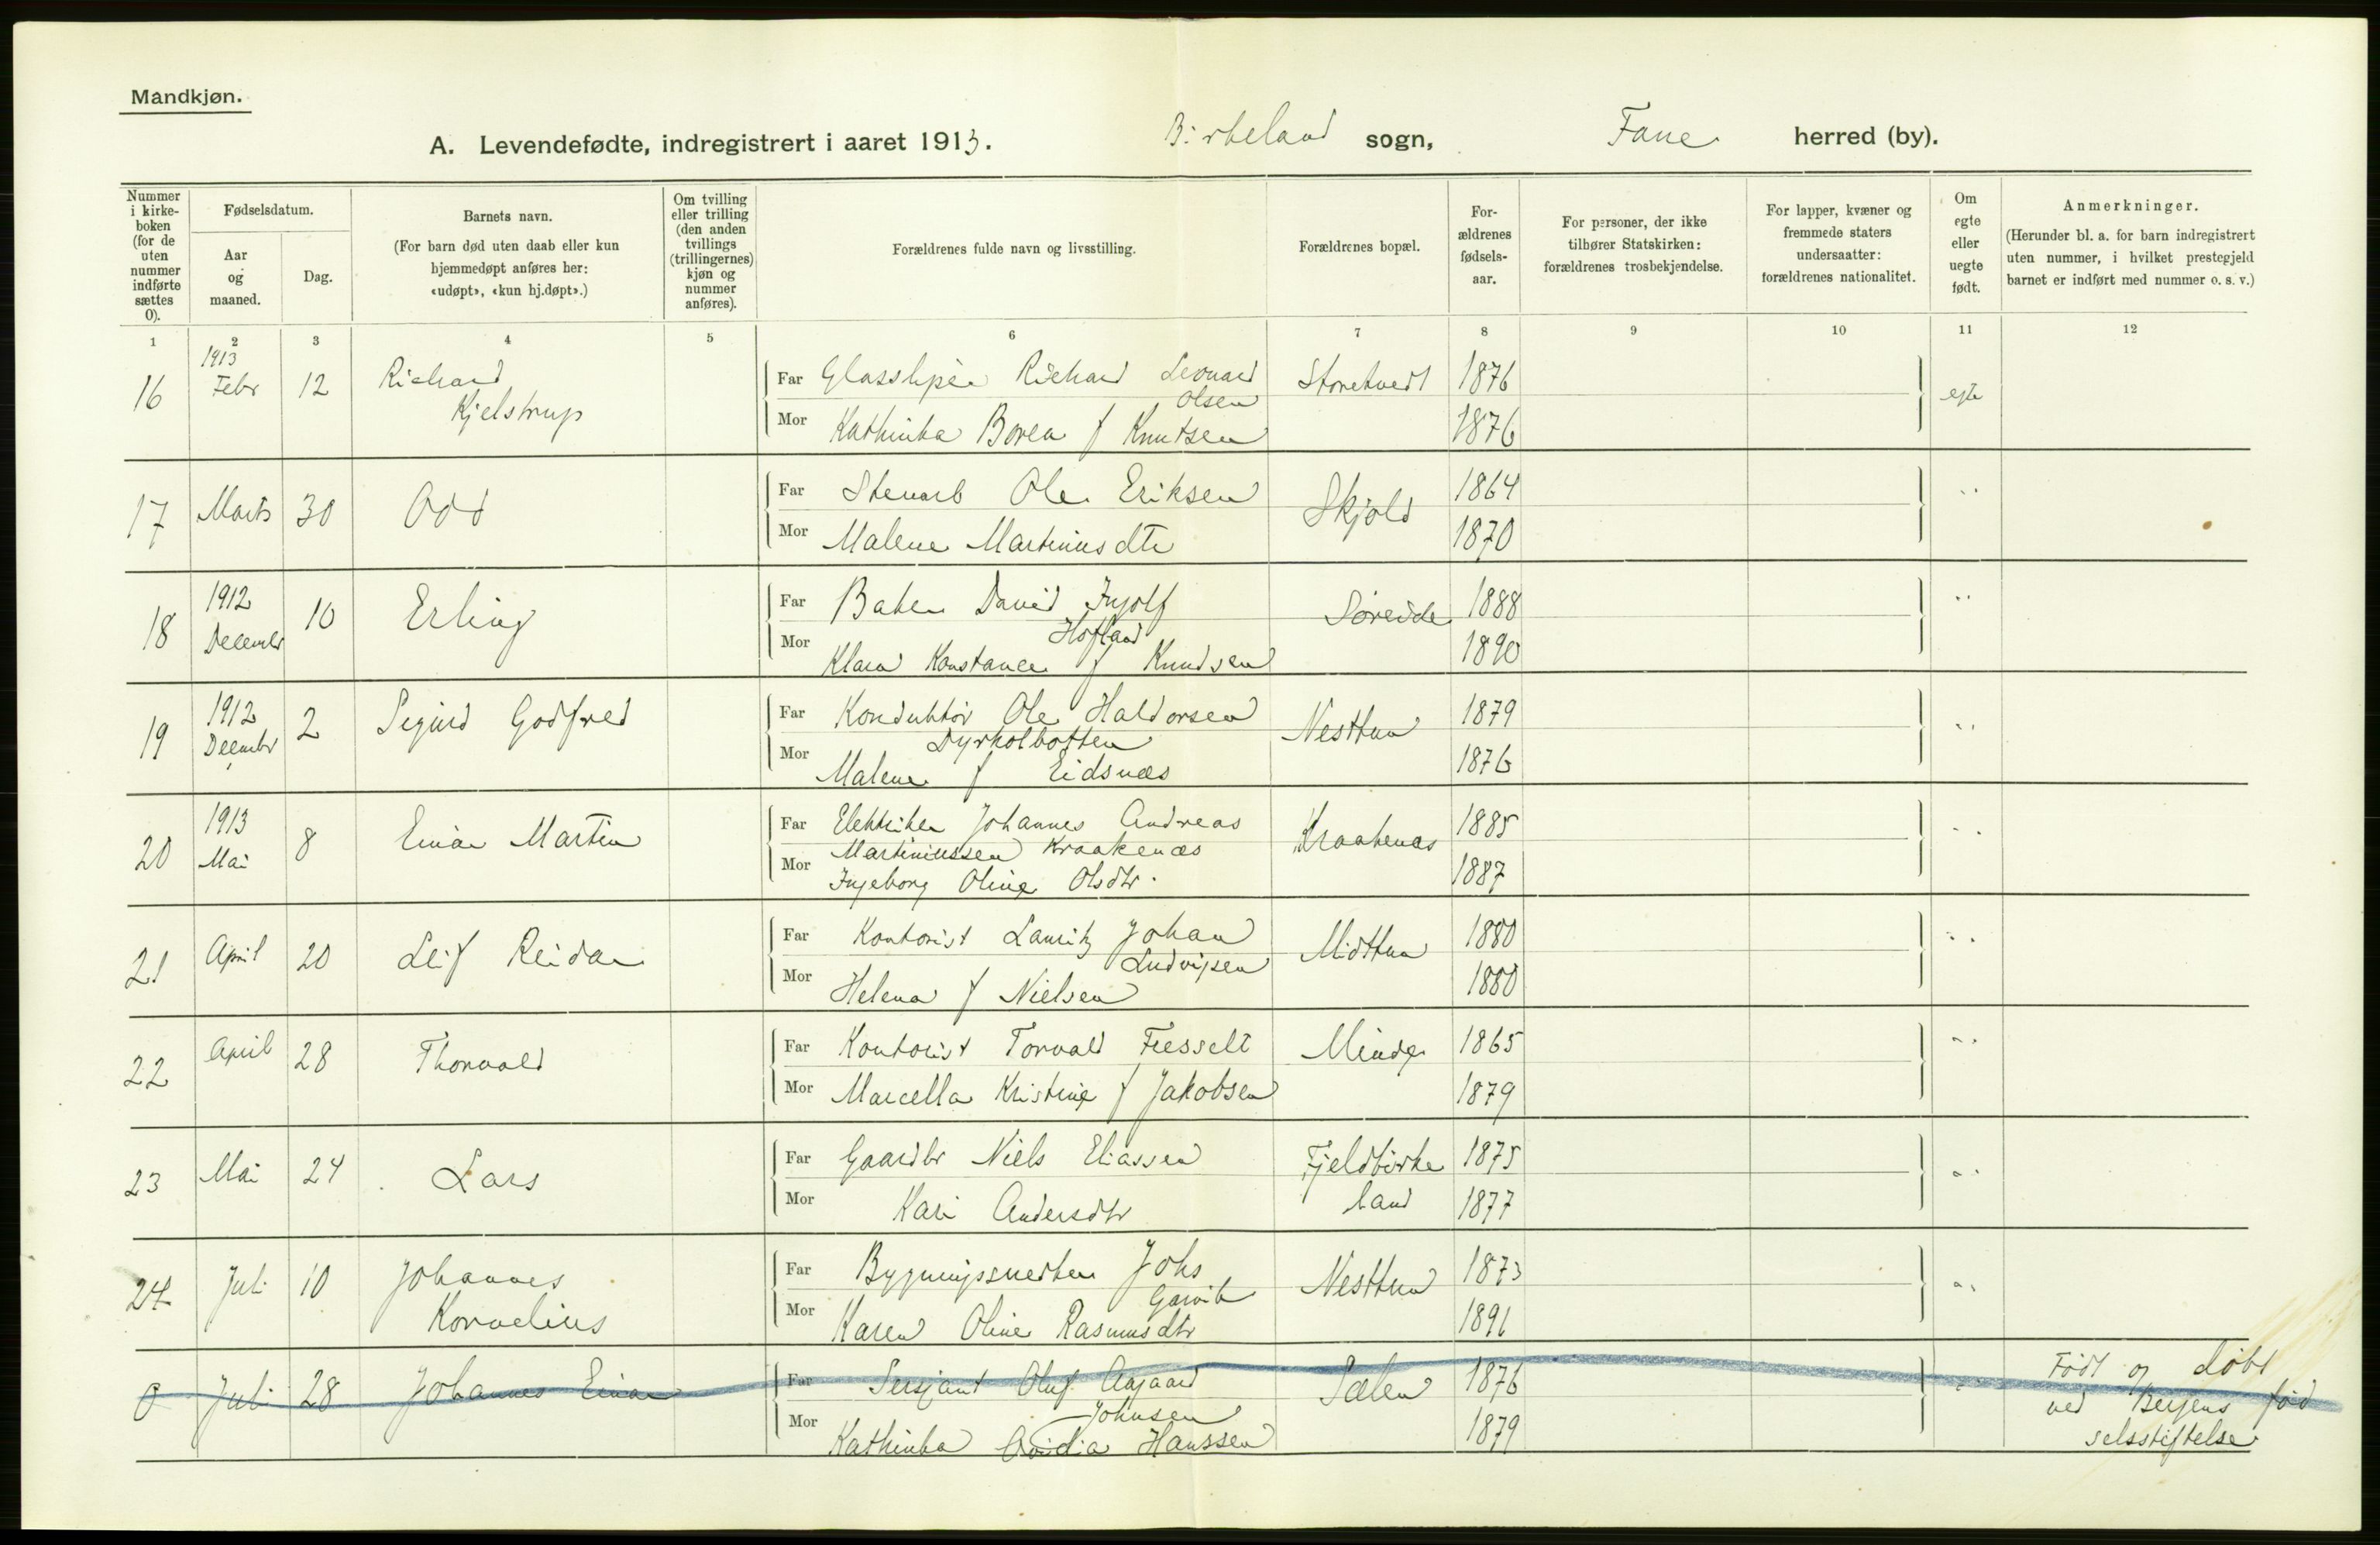 Mandkjøn.
A. Levendefødte, indregistrert i aaret 1913. Birkeland sogn, Fane herred (by).
Nummer i kirke-boken (for de uten nummer indførte sættes 0).
Fødselsdatum.
Aar og maaned.
Dag.
Barnets navn.
(For barn død uten daab eller kun hjemmedøpt anføres her: «udøpt», «kun hj.døpt».)
Om tvilling eller trilling (den anden tvillings (trillingernes) kjøn og nummer anføres).
Forældrenes fulde navn og livsstilling.
Forældrenes bopæl.
For-ældrenes fødsels-aar.
For personer, der ikke tilhører Statskirken: forældrenes trosbekjendelse.
For lapper, kvæner og fremmede staters undersaatter: forældrenes nationalitet.
Om egte eller uegte født.
Anmerkninger.
(Herunder bl. a. for barn indregistrert uten nummer, i hvilket prestegjeld barnet er indført med nummer o. s. v.)
1 2 3 4 5 6 7 8 9 10 11 12
16 1913 Febr 12 Richard Kjelstrup
Far Glassliper Richard Leonard Olsen Storetvedt 1876 egte
Mor Kathinka Borea f Knutsen 1876
17 Marts 30 Odd
Far Stenarb Ole Eriksen Skjold 1864 "
Mor Malene Martinusdtr 1870
18 1912 December 10 Erling
Far Baker David Ingolf Hofland Søreide 1888 "
Mor Klara Konstance f Knudsen 1890
19 1912 Decembr 2 Sigurd Godfred
Far Konduktør Ole Haldorsen Dyrkolbotten Nesttun 1879 "
Mor Malene f Eidsnæs 1876
20 1913 Mai 8 Einar Martin
Far Elektriker Johannes Andreas Martiniussen Kraakenæs Kraakenæs 1885 "
Mor Ingeborg Oline Olsdtr. 1887
21 April 20 Leif Reidar
Far Kontorist Lauritz Johan Ludvigsen Midttun 1880 "
Mor Helena f Nielsen 1880
22 April 28 Thorvald
Far Kontorist Torvald Minde 1865 "
Mor Marcella Kristine f Jakobsen 1879
23 Mai 24 Lars
Far Gaardbr Niels Eliassen Fjeldbirkeland 1875 "
Mor Kari Andersdtr 1877
24 Juli 10 Johannes Kornelius
Far Bygningssnedker Johs Garvik Nesttun 1873 "
Mor Karen Oline Rasmusdtr 1891
0 Juli 28 Johannes Einar
Far Sersjant Oluf Aagaard Johnsen Sælen 1876 " Født og døbt
Mor Kathinka Hanssen 1879 ved Bergens fød
selsstiftelse